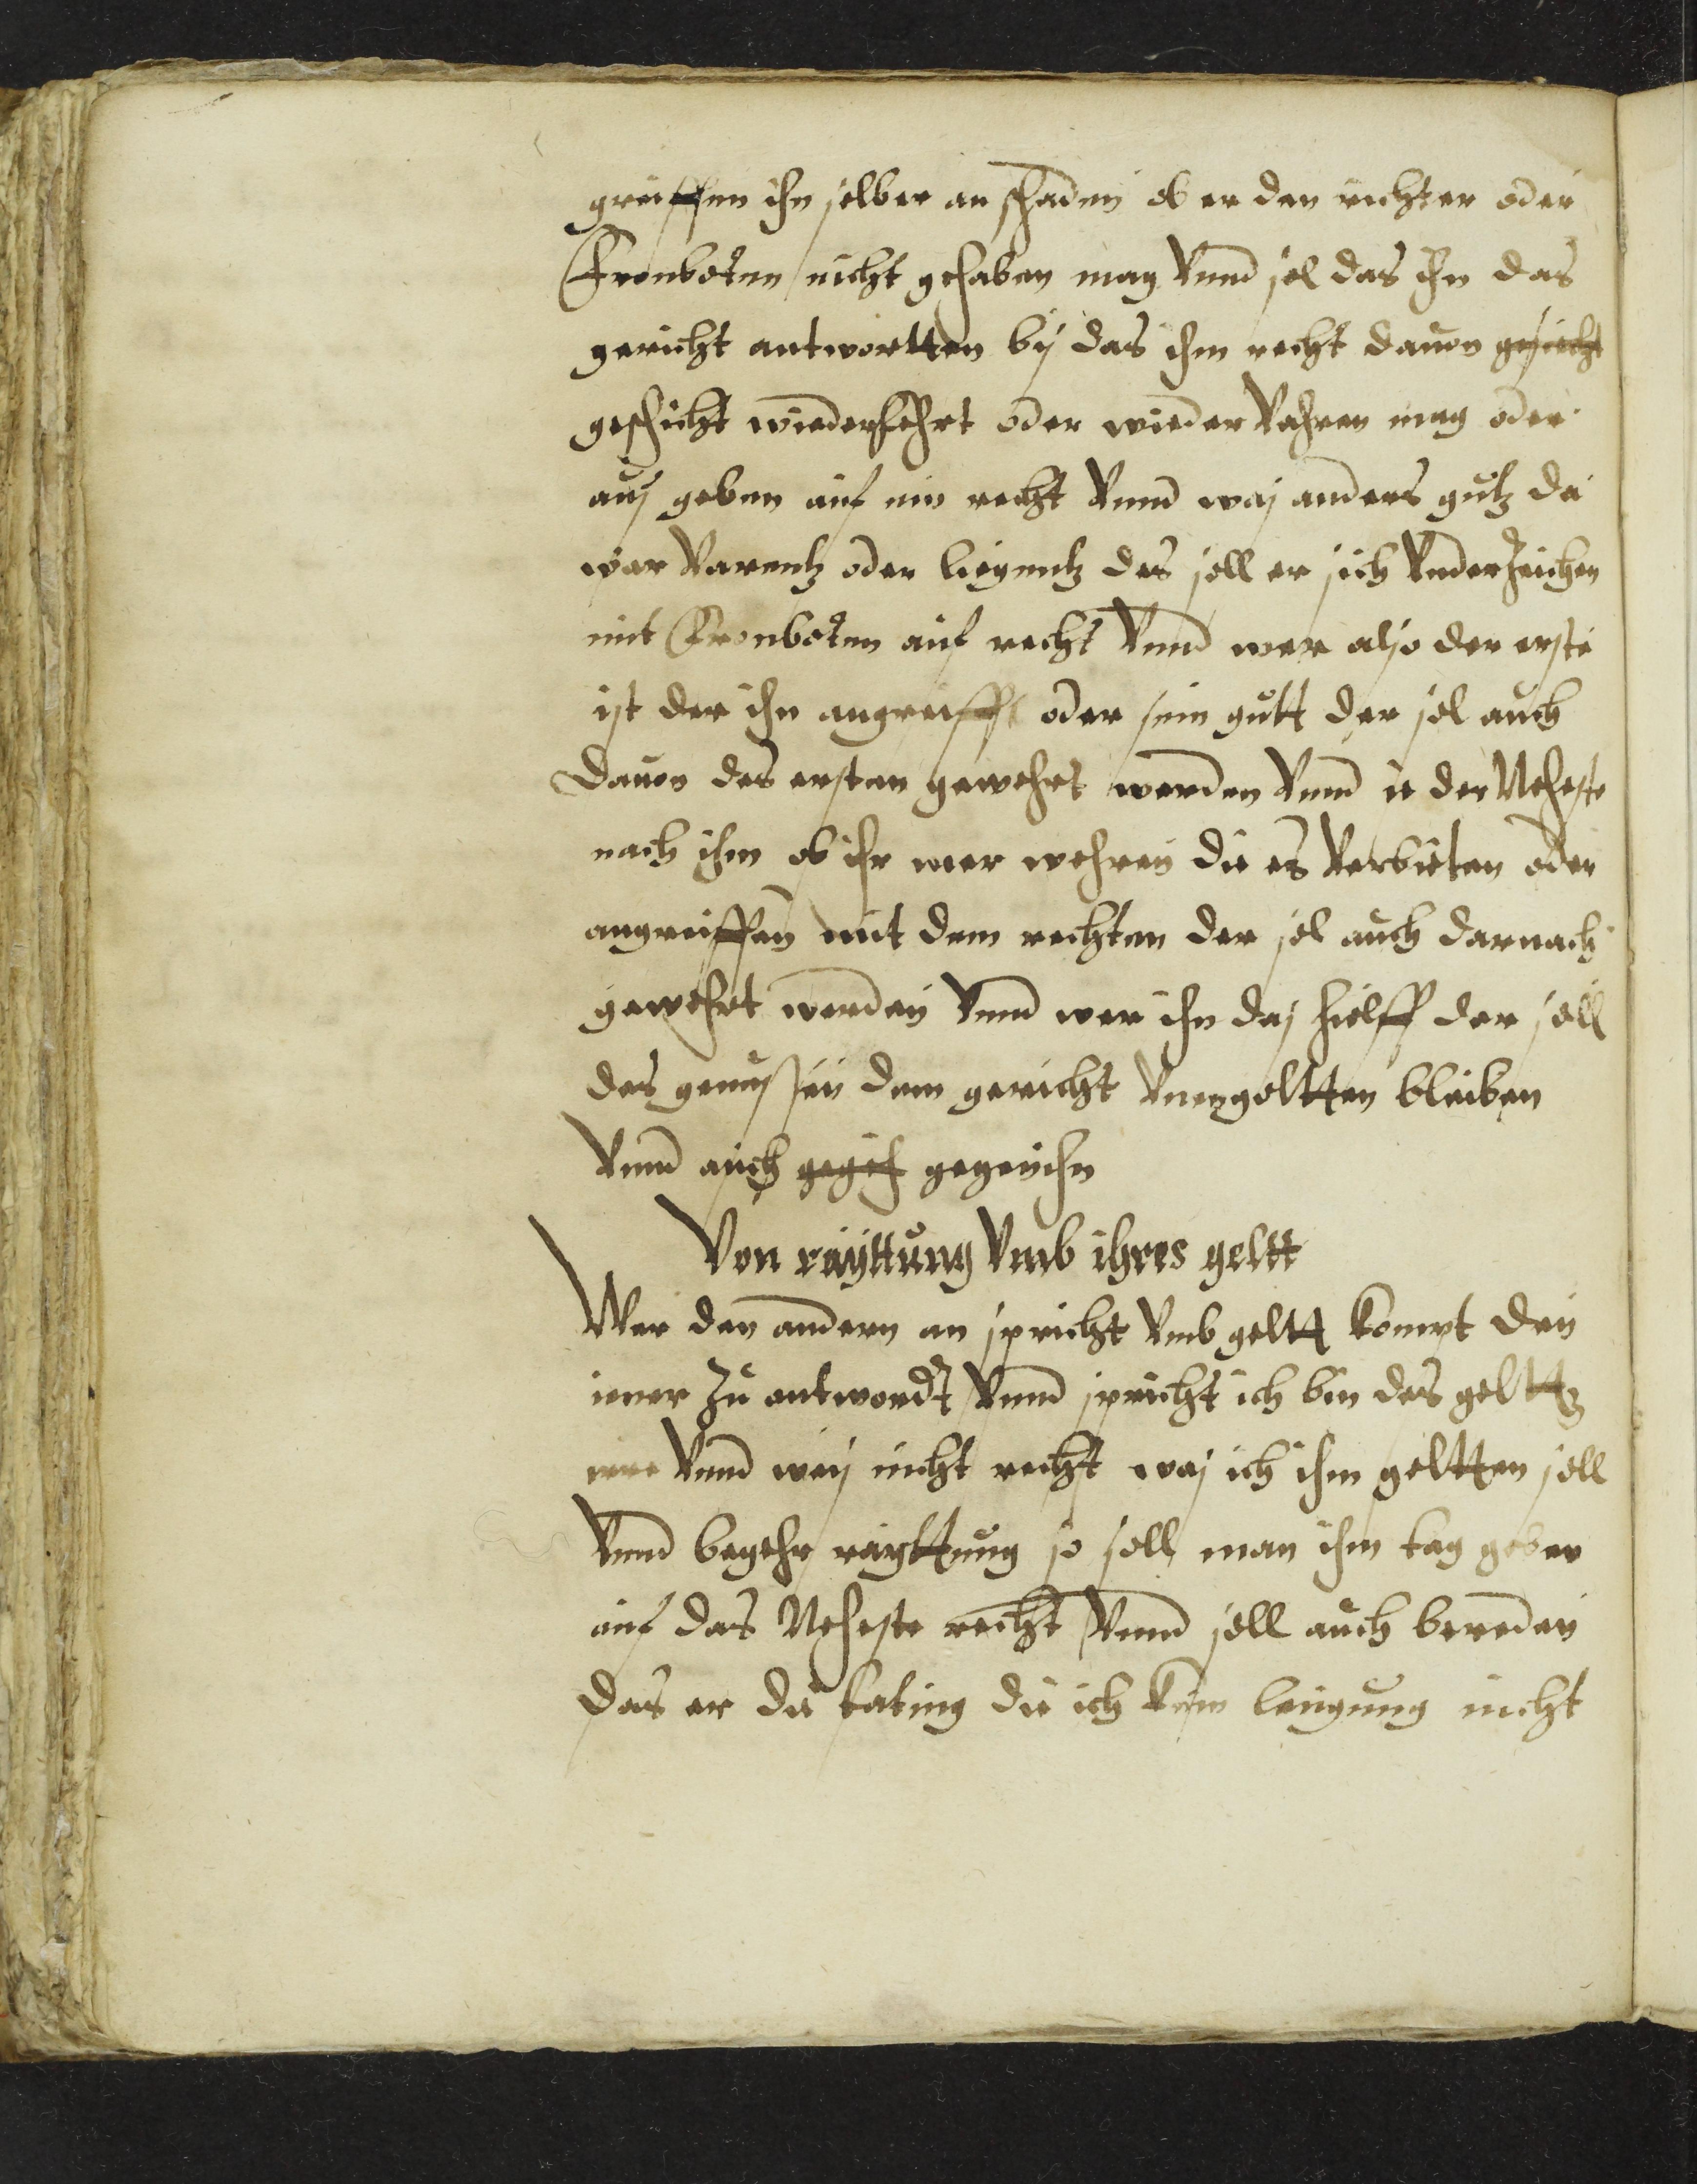 greiffen ihn selber an schaden ob er den richter oder
Fronboten nicht gehaben mag vnnd sol das ihn das
gericht antwortten bij das ihm recht dauon gesicht
geschicht wiederfehrt oder wieder Vahren mag oder
aus geben auf ein recht Vnnd was anders gutz da
wär Varentz oder ligentz des soll er sich Vnderzeichen
mit Fronboten auf recht Vnnd wer also der erste
ist der ihn angreifft oder sein gutt der sol auch
dauon des ersten gewehrt werden Vnnd ie der Neheste
nach ihm ob ihr mer wehren die es Verbieten oder
angreiffen mit dem rechten der sol auch darnach
gewehrt werden Vnnd wer ihn das hielff der soll
des genüssen dem gericht Vnengoltten bleiben
Vnnd auch gegen ihn
Von räyttung Vmb ihres geltt
Wer den andern an spricht Vmb geltt kompt den
iener zu antwordt Vnnd spricht ich bin des geltz
irre Vnnd weis nicht recht was ich ihm geltten soll
Vnnd begehr räyttung so soll man ihm tag geben
auf das Neheste recht Vnnd soll auch bereden
das er die durch kein lengung nicht